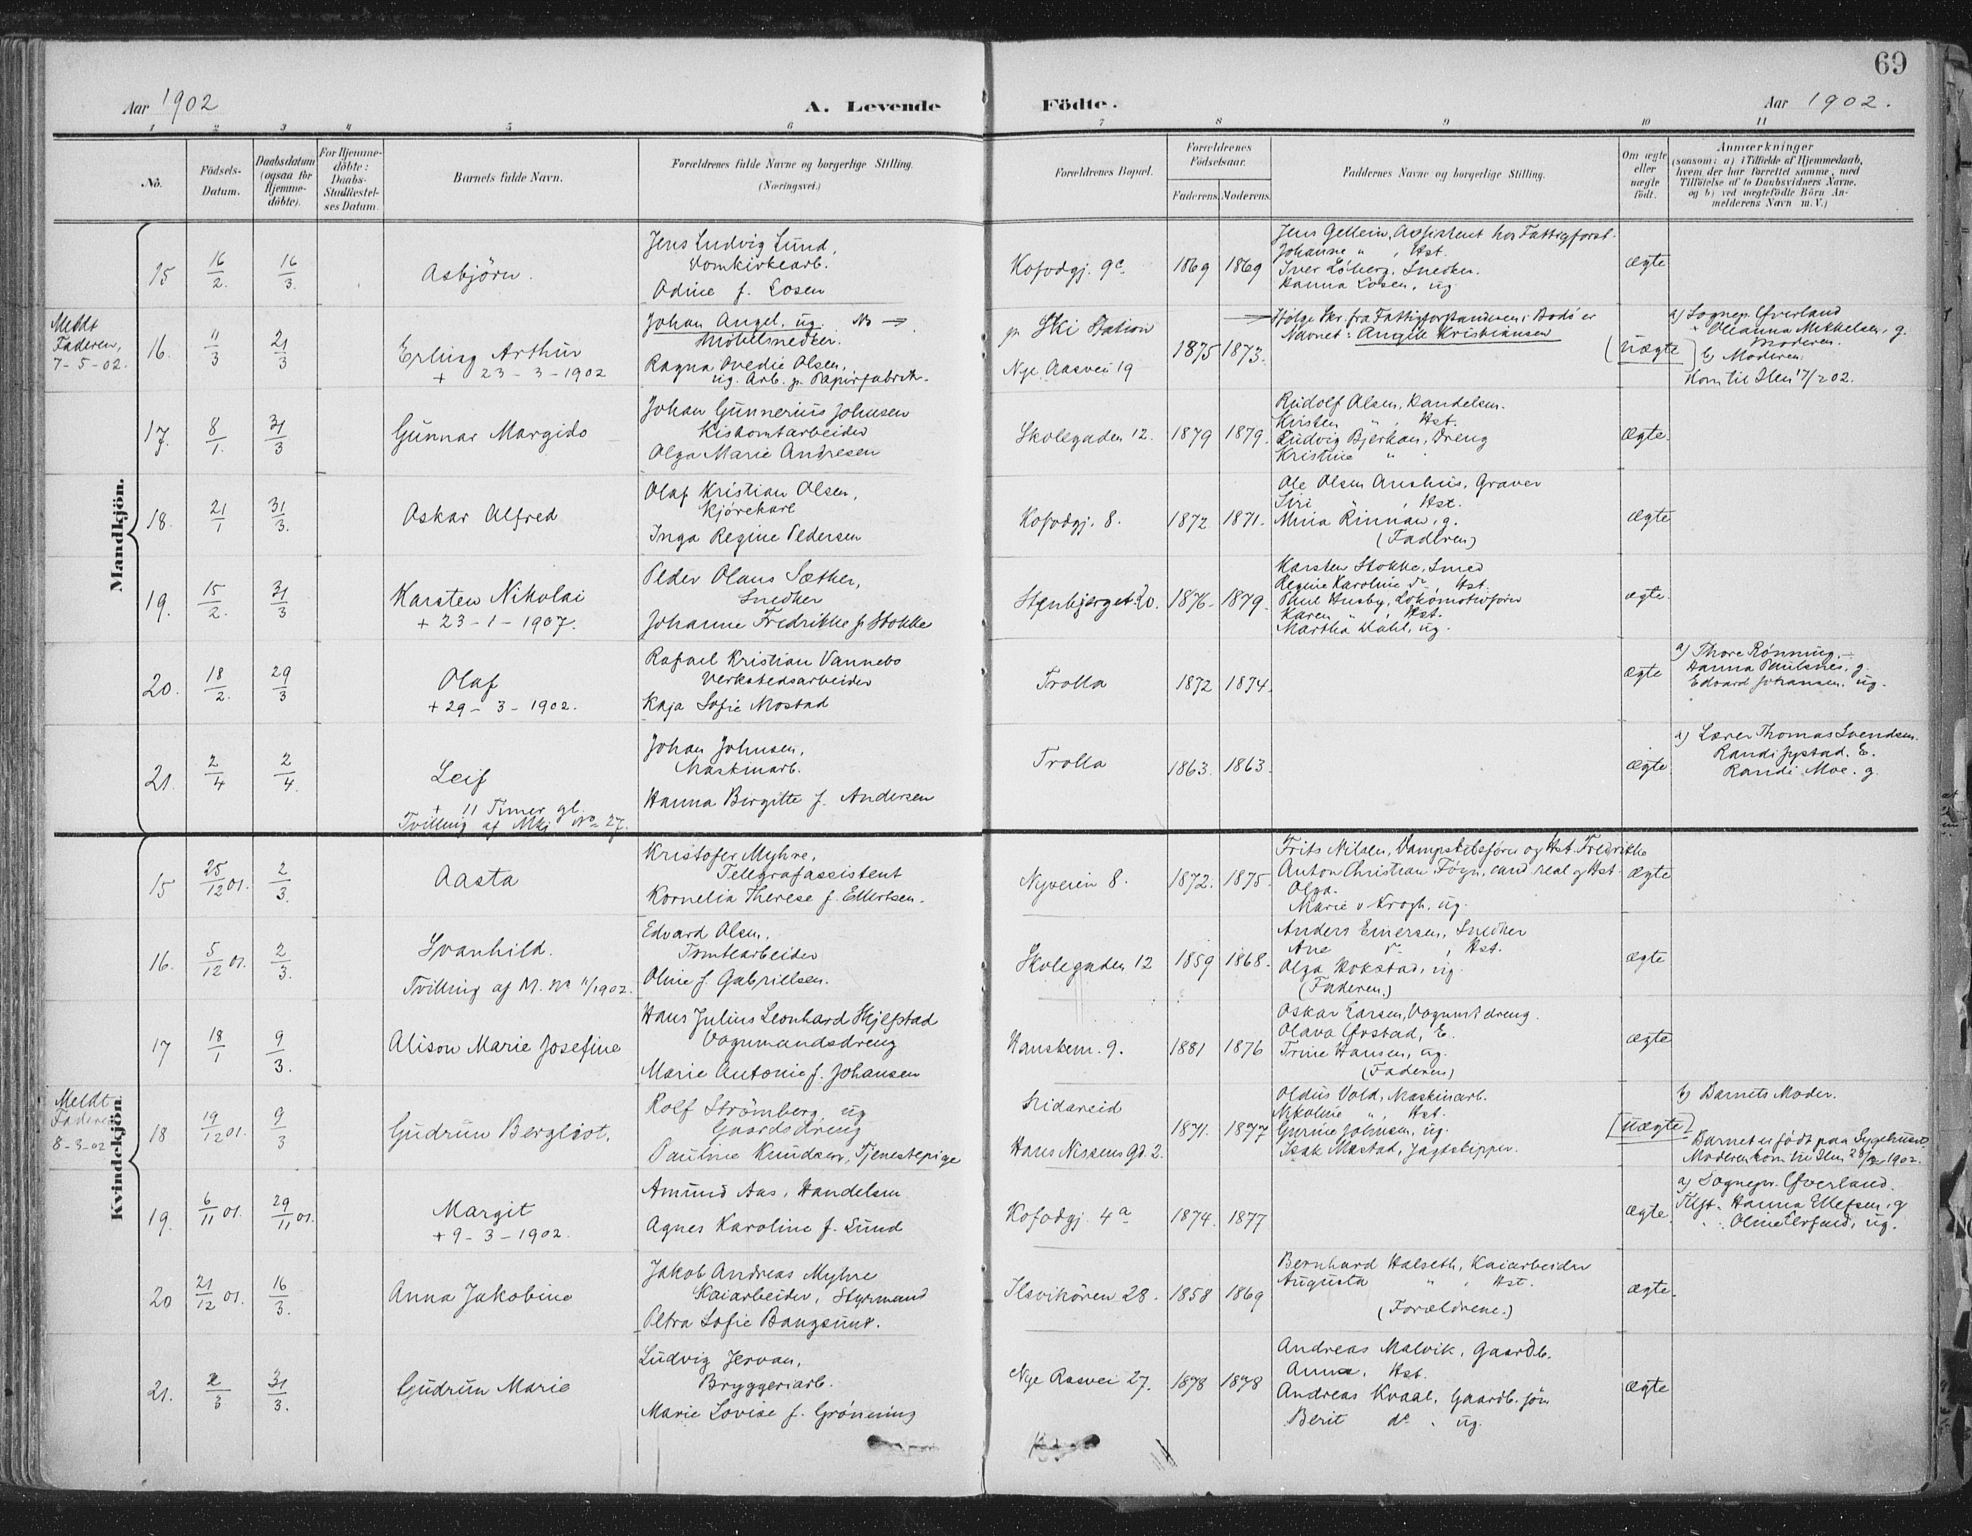 69
Aar 1902
A. Levende
Födte.
Aar 1902.
1 2 3 4 5 6 7 8 9 10 11
No.
Födsels-
Datum.
Daabsdatum
(ogsaa för
Hjemme-
döbte).
For Hjemme-
döbte:
Daabs-
Stadfæstel-
ses Datum.
Barnets fulde Navn.
Forældrenes fulde Navne og borgerlige Stilling.
(Næringsvei.)
Forældrenes Bopæl.
Forældrenes
Födselsaar.
Faderens. Moderens.
Faddernes Navne og borgerlige Stilling.
Om ægte
eller
uægte
födt.
Anmærkninger
(saasom: a) i Tilfælde af Hjemmedaab,
hvem der har forrettet samme, med
Tilföielse af to Daabsvidners Navne,
og b) ved uægtefödte Börn An-
melderens Navn m. V.)
Mandkjön.
15 16/2. 16/3.
Asbjörn.
Jens Ludvig Lund,
Domkirkearb.
Odine f. Losen
Kofodgj. 9c. 1869 1869
Jens Gellein, Assistent hos Fattigforst.
Johanne " , Hst.
Iver Löberg, Snedker.
Hanna Losen, ug.
ægte
Meldt
Faderen,
7-5-02.
16. 11/3 21/3
Erling Arthur
+ 23-3-1902
Johan Angel, ug. No →
Möbelsnedker.
Ragna Ovedie Olsen,
ug. Arb. p. Papirfabrik.
pr Ski Station
Nye Aasvei 19
1875 1873.
→ Ifölge Skr. fra Fattigforstanderen i Bodö er
Navnet: Angell Kristiansen
(uægte)
a) Sognepr. Överland
+ Oleanna Mekkelsen, g.
Moderen.
b) Moderen.
Kom til Ilen 17/2 02.
17. 8/1. 31/3
Gunnar Margido
Johan Gunnerius Johnsen
Kiskomtarbeider
Olga Marie Andresen
Skolegaden 12. 1879 1879.
Rudolf Olsen, Handelsm.
Kirsten " , Hst.
Ludvig Bjerkan, Dreng
Kristine "
ægte.
18. 21/1 31/3.
Oskar Alfred
Olaf Kristian Olsen,
Kjörekarl
Inga Regine Pedersen
Kofodgj. 8. 1872 1871.
Ole Olsen Aunhus, Graver
Siri " , Hst.
Mina Rinnan, g.
(Faderen)
ægte
19. 15/2. 31/3
Karsten Nikolai
+ 23-1-1907.
Peder Olaus Sæther,
Snedker
Johanne Fredrikke f. Stokke
Stenbjerget 20. 1876 1879.
Karsten Stokke, Smed
Regine Karoline do, Hst.
Paul Husby, Lokomotivförer
Karen " , Hst.
Martha Dahl, ug.
ægte.
20. 18/2. 29/3
Olaf
+ 29-3-1902.
Rafael Kristian Vannebo
Verkstedsarbeider
Kaja Sofie Mostad
Trolla 1872 1874.
ægte
a) Thore Rönning.
Hanna Paulsnes, g.
Edvard Johansen, ug.
21. 2/4 2/4.
Leif
+ 11 Timer gl.
Tvilling af Mkj No 27.
Johan Johnsen,
Maskinarb.
Hanna Birgitte f. Andersen
Trolla 1863. 1863.
ægte.
a) Lærer Thomas Svendsen.
Randi Jystad. E.
Randi Moe. g.
Kvindekjön.
15 25/12 01. 2/3.
Aasta
Kristofer Myhre,
Telegrafassistent
Kornelia Therese f. Ellertsen.
Nyveien 8. 1872. 1875.
Frits Nilsen, Dampskibsförer og Hst. Fredrikke
Anton Christian Föyn, cand real og Hst.
Olga.
Marie v Krogh, ug.
ægte
16. 5/12 01. 2/3.
Svanhild.
Tvilling af M. No 11/1902.
Edvard Olsen,
Tomtearbeider
Oline f. Gabrielsen.
Skolegaden 12 1859 1868.
Anders Einersen, Snedker
Ane do , Hst.
Olga Hokstad, ug.
(Faderen.)
ægte
17 18/1 9/3.
Alison Marie Josefine
Hans Julius Leonhard Skjefstad
Vognmandsdreng
Marie Antonie f. Johansen
Hanskem. 9. 1881 1876
Oskar Larsen, Vognmdreng.
Olava Örstad, E.
Trine Hansen, ug.
(Faderen)
ægte
Meldt
Faderen
8-3-02
18 19/12 01. 9/3
Gudrun Bergliot.
Rolf Strömberg, ug
Gaardsdreng
Pauline Knudsen, Tjenestepige
Lidareid
Hans Nissens Gd. 2.
1871. 1877
Oldus Vold, Maskinarb.
Nikoline " , Hst.
Gurine Johnsen, ug.
Isak Mastad, Jagtskipper.
(uægte)
b) Barnets Moder.
Barnet er födt paa Sygehuset
Moderen kom til Ilen 28/2 1902.
19. 6/11 01. 29/11 01.
Margit
+ 9-3-1902.
Amund Aas, Handelsm
Agnes Karoline f. Lund
Kofodgj. 4a 1874. 1877
ægte.
a) Sognepr. Överland.
Tilst. Hanna Ellefsen, g
20 21/12 01. 16/3.
Anna Jakobine
Jakob Andreas Myhre
Kaiarbeider, Styrmand
Petra Sofie Bangsund.
Ilsvikören 28. 1858 1869
Bernhard Halseth, Kaiarbeider
Augusta " , Hst.
(Forældrene.)
ægte.
21. 2/3 31/3.
Gudrun Marie
Ludvig Jervan,
Bryggeriarb.
Marie Lovise f. Grönning
Nye Aasvei 27. 1878 1878
Andreas Malvik, Gaardb.
Anna, Hst.
Andreas Kvaal, Gaardb. sön
Berit do , ug.
ægte